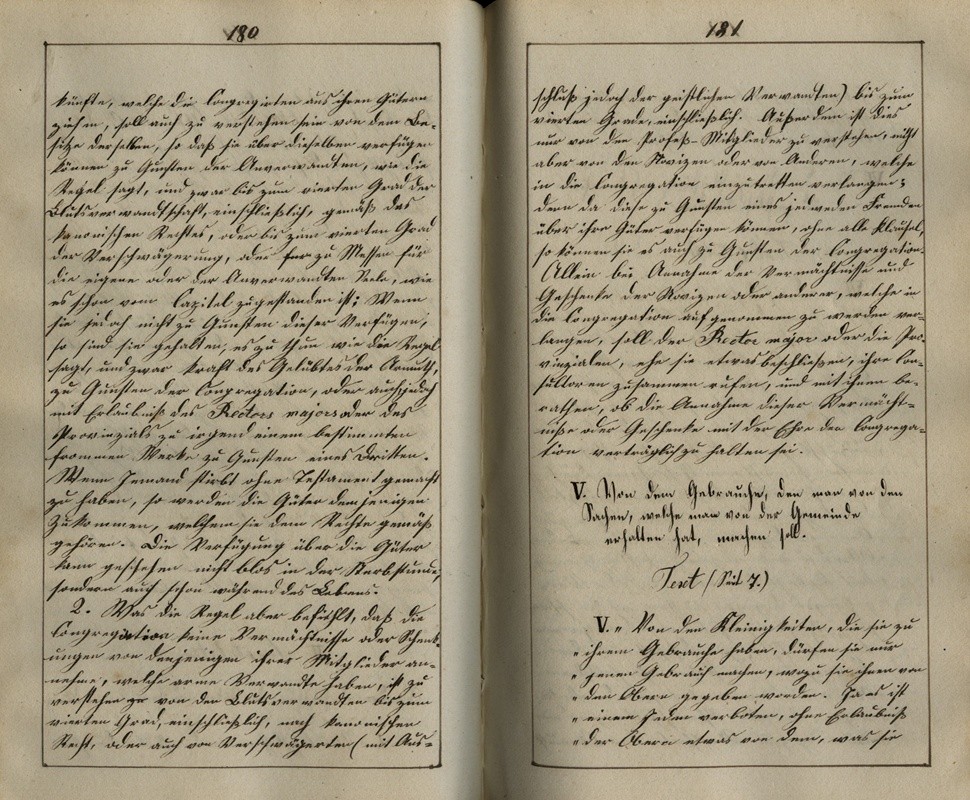 180
künfte, welche die Congregirten aus ihren Gütern
ziehen, soll auch zu verstehen sein von dem Be-
sitze derselben, so daß sie über dieselben verfügen
können zu Gunsten der Anverwandten, wie die
Regel sagt, und zwar bis zum vierten Grad der
Blutsverwandtschaft, einschließlich, gemäß des
kanonischen Rechtes, oder bis zum vierten Grad
der Verschwägerung, oder zu Messen für
die eigene oder der Anverwandten Seele, wie
es schon vom Capitel zugestanden ist; Wenn
sie jedoch nicht zu Gunsten dieser Verfügen,
so sind sie gehalten, es zu thun wie die Regel
sagt, und zwar kraft des Gelübtes der Armuth,
zu Gunsten der Congregation, oder auch jedoch
mit Erlaubniß des Rectors majors oder des
Provinzials zu irgend einem bestimmten
frommen Werke zu Gunsten eines Dritten.
Wenn Jemand stirbt ohne Testament gemacht
zu haben, so werden die Güter demjenigen
zukommen, welchem sie dem Rechte gemäß
gehören. Die Verfügung über die Güter
kann geschehen nicht blos in der Sterbstunde,
sondern auch schon während des Lebens.
2. Was die Regel aber befiehlt, daß die
Congregation keine Vermächtnisse oder Schenk-
ungen von denjenigen ihrer Mitglieder an-
nehme, welche arme Verwandte haben, ist zu
verstehen von den Blutsverwandten bis zum
vierten Grad, einschließlich, nach kanonischen
Recht, oder auch von Verschwägerten (mit Aus-
181
schluß jedoch der geistlichen Verwandten) bis zum
vierten Grade, einschließlich. Außerdem ist dies
nur von den Profeß-Mitglieder zu verstehen, nicht
aber von den Novizen oder von Anderen, welche
in die Congregation einzutretten verlangen;
denn da diese zu Gunsten eines jedweden Fremden
über ihre Güter verfügen können, ohne alle Klausel,
so können sie es auch zu Gunsten der Congregation.
Allein bei Annahme der Vermächtnisse und
Geschenke der Novizen oder anderer, welche in
die Congregation aufgenommen zu werden ver-
langen, soll der Rector major oder die Pro-
vinzialen, ehe sie etwas beschließen, ihre Con-
sultoren zusammen rufen, und mit ihnen be-
rathen, ob die Annahme dieser Vermächt-
nisse oder Geschenke mit der Ehre der Congrega-
tion verträglich zu halten sei.
V. Von dem Gebrauche, den man von den
Sachen, welche man von der Gemeinde
erhalten hat, machen soll.
Text (Seit 7.)
V. „ Von den Kleinigkeiten, die sie zu
„ ihrem Gebrauche haben, dürfen sie nur
„ jenen Gebrauch machen, wozu sie ihnen von
„ den Obern gegeben worden. Ja es ist
„ einem Jeden verboten, ohne Erlaubniß
„ der Obern etwas von dem, was sie